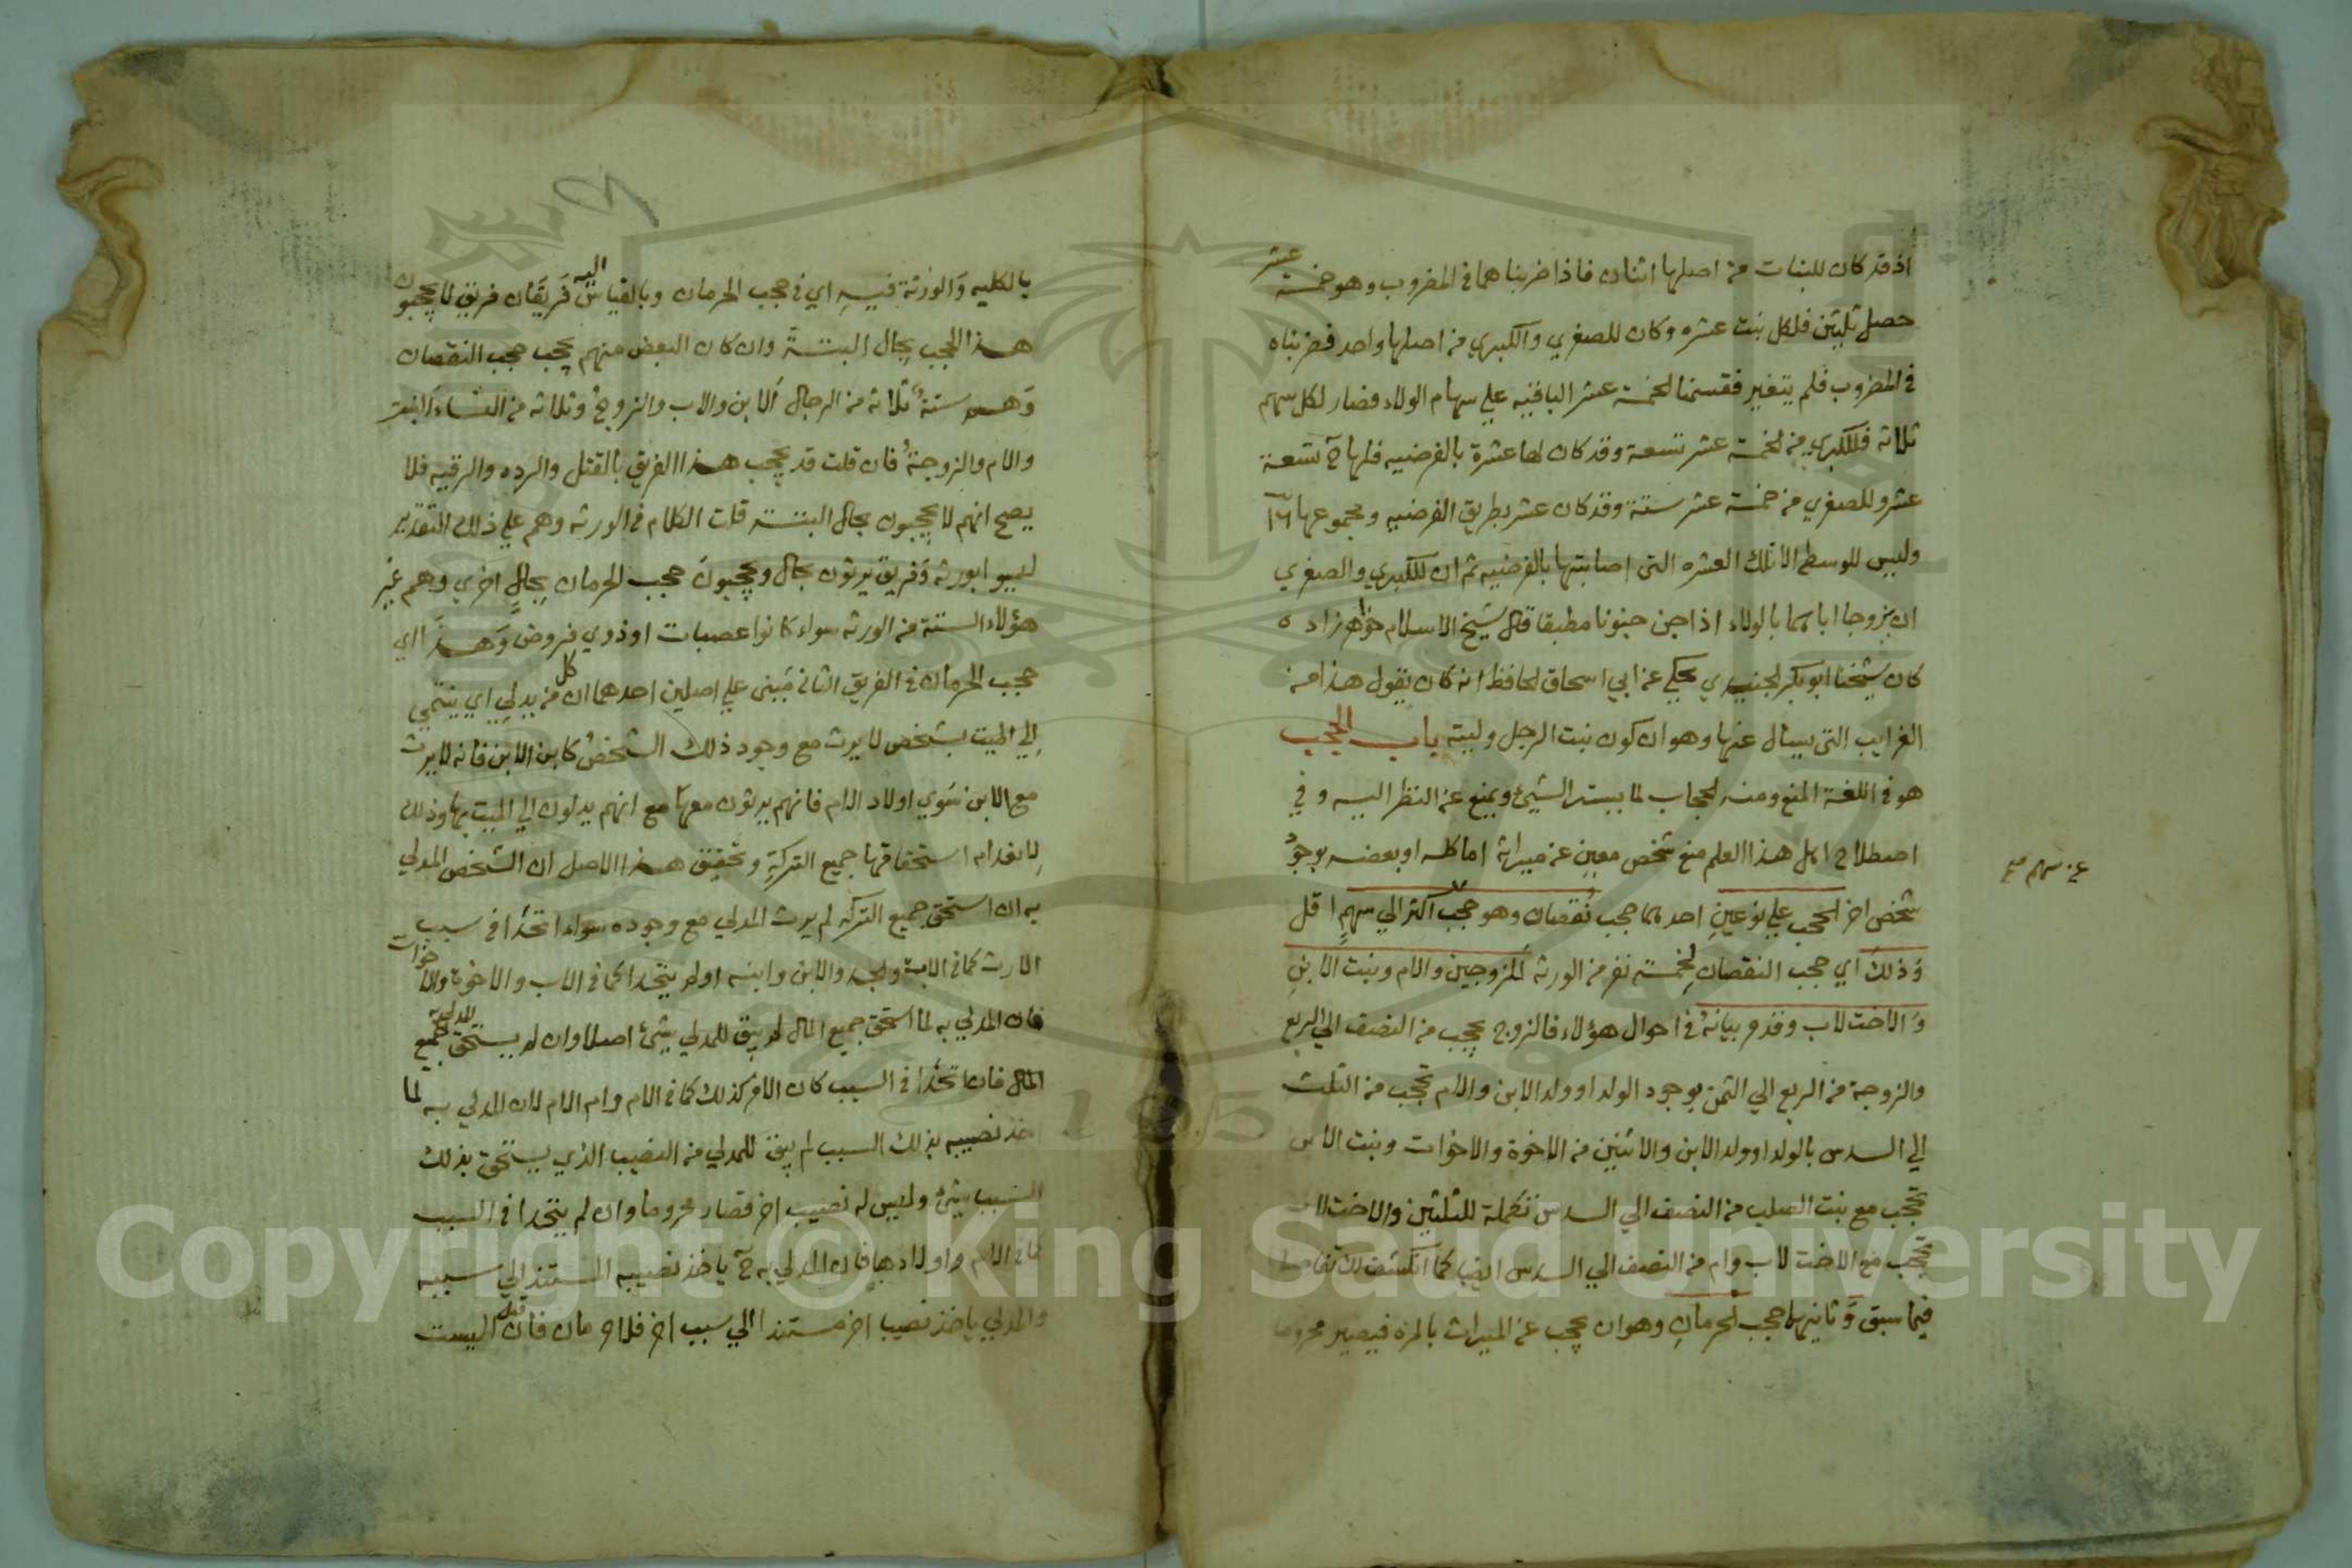 اذ قد كان للبنات من اصلها اثنان فاذا ضربناهما في المضروب وهو خمسة عشر
حصل ثلثين فلكل بنت عشره وكان للصغري والكبري من اصلها واحد فضربناه
في المضروب فلم يتغير فقسمنا الخمسة عشر الباقيه علي سهام الولاء فصار لكل سهم
ثلاثه فللكبري من الخمسة عشر تسعة وقد كان لها عشرة بالفرضيه فلها ح تسعة
عشر وللصغري من خمسة عشر ستة وقد كان عشر بطريق الفرضيه ومجموعها ١٦
وليس للوسطي الا تلك العشره التي اصابتها بالفرضيه ثم ان للكبري والصغري
ان يزوجا اباهما بالولاء اذا جن جنونا مطبقا قال شيخ الاسلام خواهر زاده
كان شيخنا ابو بكر الجنيدي يحكي عن ابي اسحاق الحافظ انه كان يقول هذا من
الغرايب التي يسال عنها وهو ان كون بنت الرجل وليته باب الحجب
هو في اللغة المنع ومنه الحجاب لما يستر الشيئ ويمنع عن النظر اليه وفي
اصطلاح اهل هذا العلم منع شخص معين عن ميراثه اما كله او بعضه بوجود
شخص اخر الحجب علي نوعين احدهما حجب نقصان وهو حجب اكثر الي سهم اقل
عن سهم صح
وذلك اي حجب النقصان لخمسة نفر من الورثه للزوجين والام وبنت الابن
والاخت لاب وقد مر بيانه في احوال هؤلاء فالزوج يحجب من النصف الي الربع
والزوجة من الربع الي الثمن بوجود الولد او ولد الابن والام تحجب من الثلث
الي السدس بالولد او ولد الابن والاثنين من الاخوة والاخوات وبنت الابن
تحجب مع بنت الصلب من النصف الي السدس تكملة للثلثين والاخت لاب
تحجب مع الاخت لاب وام من النصف الي السدس ايضا كما انكشف لك
فيما سبق وثانيهما حجب الحرمان وهو ان يحجب عن الميراث بالمره فيصير محروما
بالكليه والورثة فيه اي في حجب الحرمان وبالقياس اليه فريقان فريق لا يحجبون
هذا الحجب بحال البتة وان كان البعض منهم يحجب حجب النقصان
وهم ستة ثلاثه من الرجال الابن والاب والزوج وثلاثه من النساء البنت
والام والزوجة فان قلت قد يحجب هذا الفريق بالقتل والرده والرقيه فلا
يصح انهم لا يحجبون بحال البتة قلت الكلام في الورثه وهم علي ذلك التقدير
ليسوا بورثه وفريق يرثون بحال ويحجبون حجب الحرمان بحال اخري وهم غير
هؤلاء الستة من الورثه سواء كانوا عصبات او ذوي فروض وهذا اي
حجب الحرمان في الفريق الثاني مبنى علي اصلين احدهما ان كل من يدلي اي ينتمي
الي الميت بشخص لا يرث مع وجود ذلك الشخص كابن الابن فانه لا يرث
مع الابن سوي اولاد الام فانهم يرثون معها مع انهم يدلون الي الميت بها وذلك
لانعدام استحقاقها جميع التركة وتحقيق هذا الاصل ان الشخص المدلي
به ان استحق جميع التركه لم يرث المدلي مع وجوده سواء اتحدا في سبب
الارث كما في الاب والجد والابن وابنه او لم يتحدا كما في الاب والاخوة والاخوات
فان المدلي به لما استحق جميع المال لم يبق للمدلي شئ اصلا وان لم يستحق المدلي به جميع
المال فان اتحدا في السبب كان الامر كذلك كما في الام وام الام لان المدلي به لما
اخذ نصيبه بذلك السبب لم يبق للمدلي من النصيب الذي يستحق بذلك
السبب شئ وليس له نصيب اخر فصار محروما وان لم يتحدا في السبب
كما في الام واولادها فان المدلي به ح ياخذ نصيبه المستند الي سببه
والمدلي ياخذ نصيبا اخر مستندا الي سبب اخر فلا حرمان فان قيل اليست
Copyright © King Saud University
1957